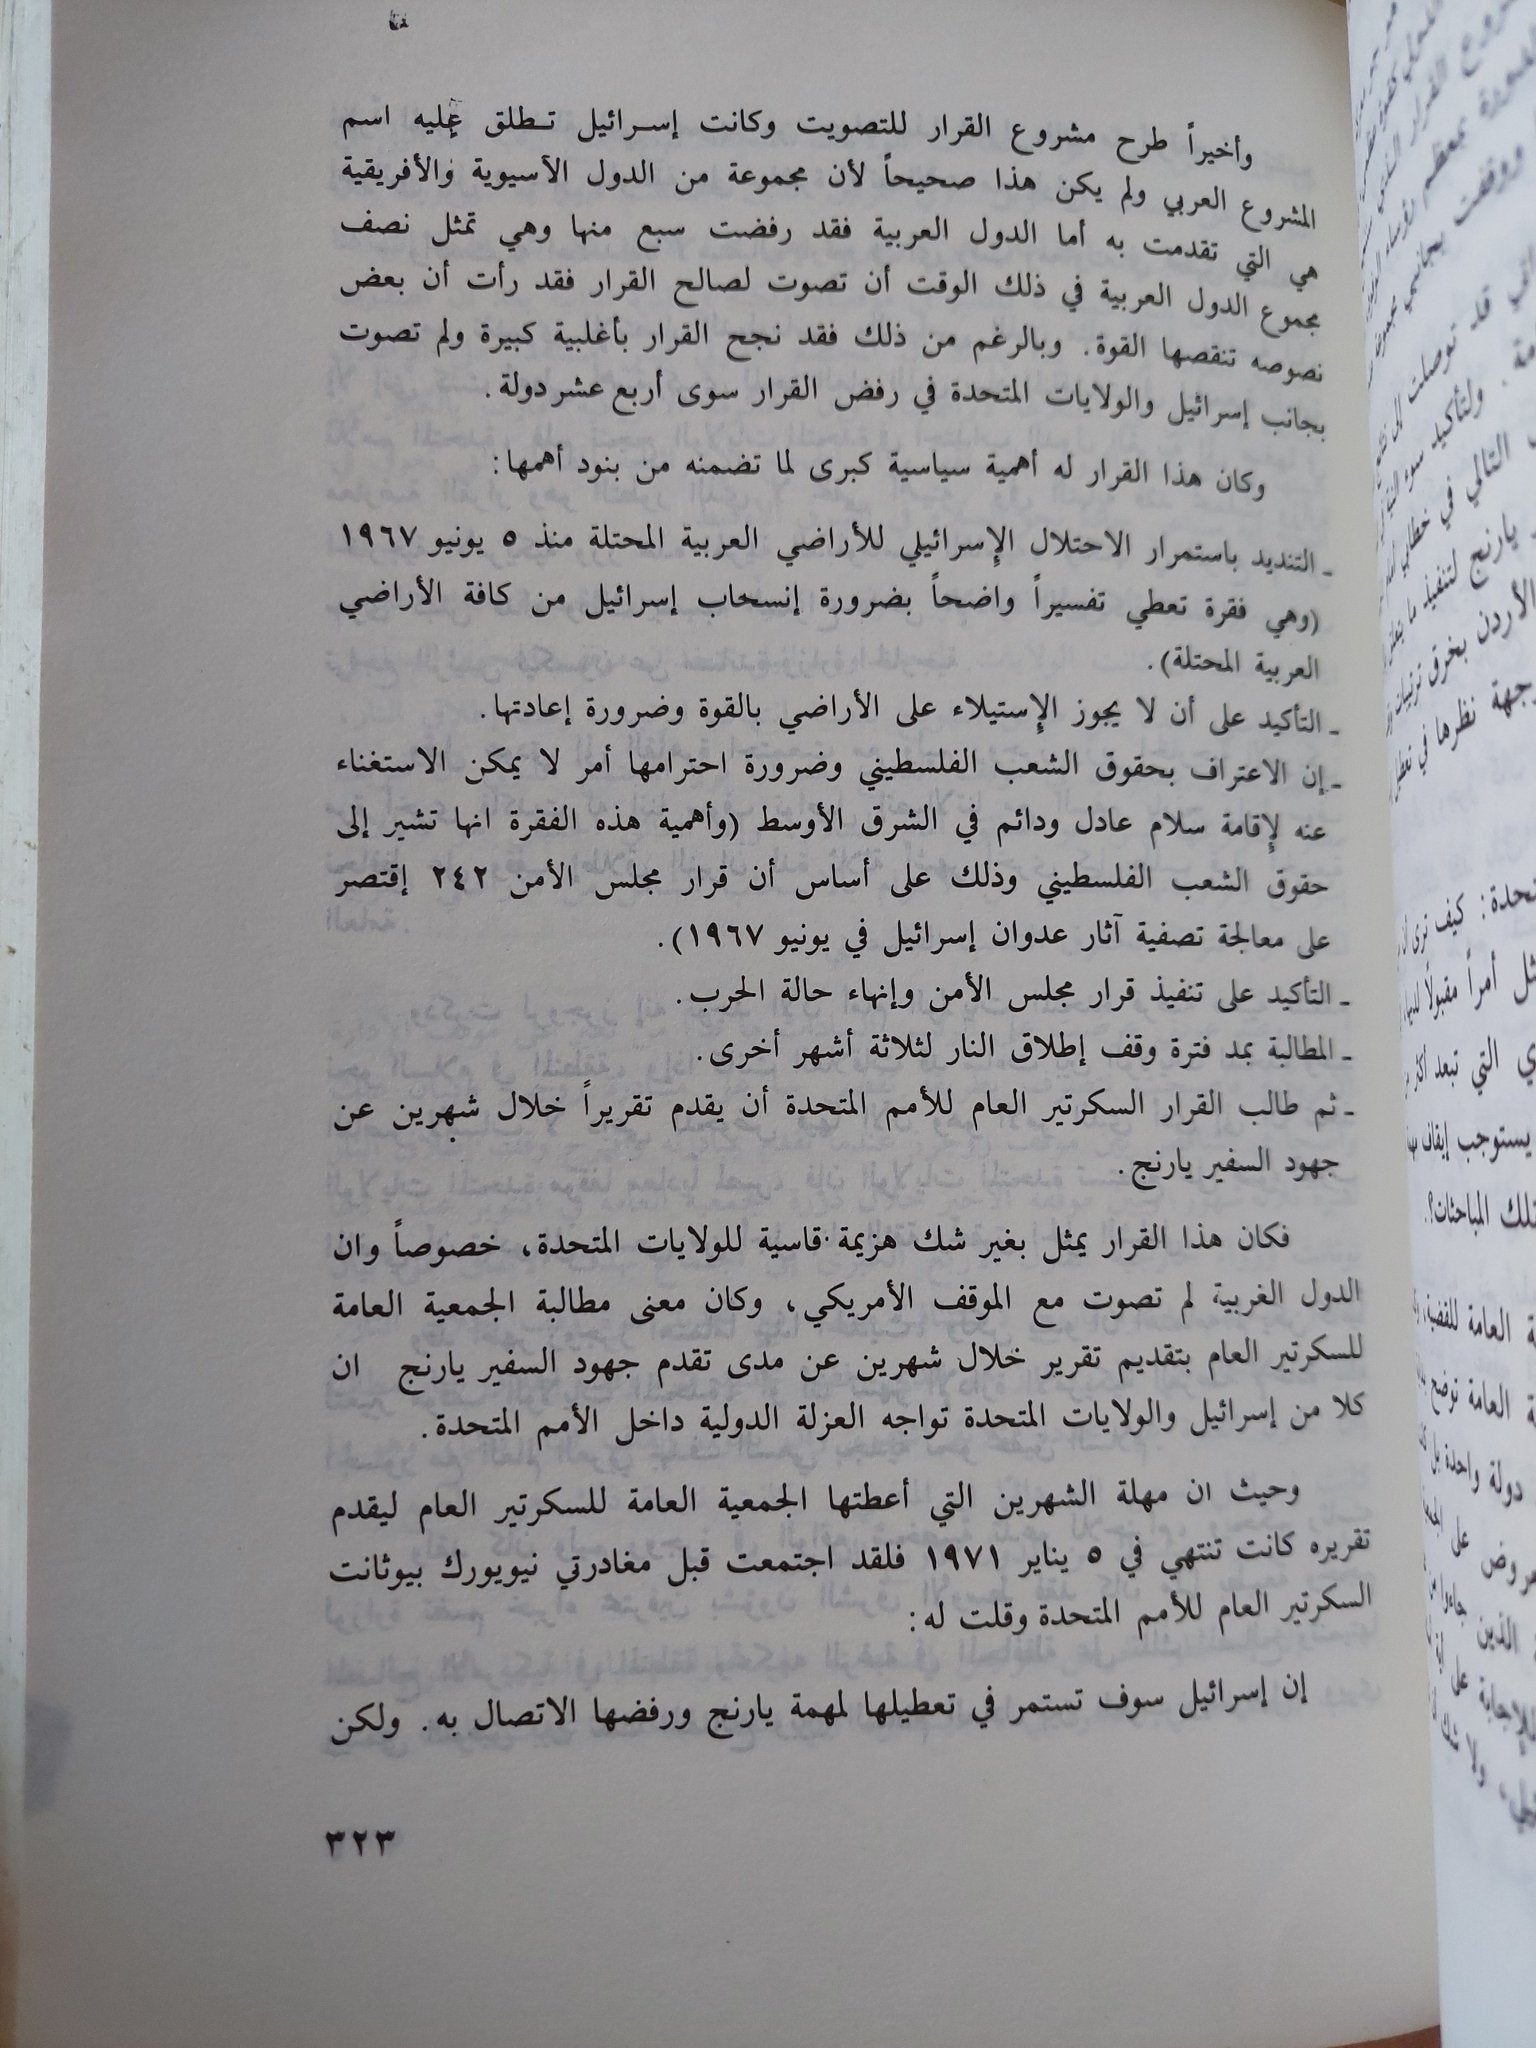 وأخيراً طرح مشروع القرار للتصويت وكانت إسرائيل تطلق عليه اسم
المشروع العربي ولم يكن هذا صحيحاً لأن مجموعة من الدول الآسيوية والأفريقية
هي التي تقدمت به أما الدول العربية فقد رفضت سبع منها وهي تمثل نصف
مجموع الدول العربية في ذلك الوقت أن تصوت لصالح القرار فقد رأت أن بعض
نصوصه تنقصها القوة. وبالرغم من ذلك فقد نجح القرار بأغلبية كبيرة ولم تصوت
بجانب إسرائيل والولايات المتحدة في رفض القرار سوى أربع عشر دولة.
وكان هذا القرار له أهمية سياسية كبرى لما تضمنه من بنود أهمها:
ـ التنديد باستمرار الاحتلال الإسرائيلي للأراضي العربية المحتلة منذ ٥ يونيو ١٩٦٧
(وهي فقرة تعطي تفسيراً واضحاً بضرورة إنسحاب إسرائيل من كافة الأراضي
العربية المحتلة).
ـ التأكيد على أن لا يجوز الإستيلاء على الأراضي بالقوة وضرورة إعادتها.
ـ إن الاعتراف بحقوق الشعب الفلسطيني وضرورة احترامها أمر لا يمكن الاستغناء
عنه لإقامة سلام عادل ودائم في الشرق الأوسط (وأهمية هذه الفقرة انها تشير إلى
حقوق الشعب الفلسطيني وذلك على أساس أن قرار مجلس الأمن ٢٤٢ إقتصر
على معالجة تصفية آثار عدوان إسرائيل في يونيو ١٩٦٧).
ـ التأكيد على تنفيذ قرار مجلس الأمن وإنهاء حالة الحرب.
ـ المطالبة بمد فترة وقف إطلاق النار لثلاثة أشهر أخرى.
ـ ثم طالب القرار السكرتير العام للأمم المتحدة أن يقدم تقريراً خلال شهرين عن
جهود السفير يارنج.
فكان هذا القرار يمثل بغير شك هزيمة قاسية للولايات المتحدة، خصوصاً وان
الدول الغربية لم تصوت مع الموقف الأمريكي، وكان معنى مطالبة الجمعية العامة
للسكرتير العام بتقديم تقرير خلال شهرين عن مدى تقدم جهود السفير يارنج ان
كلا من إسرائيل والولايات المتحدة تواجه العزلة الدولية داخل الأمم المتحدة.
وحيث ان مهلة الشهرين التي أعطتها الجمعية العامة للسكرتير العام ليقدم
تقريره كانت تنتهي في ٥ يناير ١٩٧١ فلقد اجتمعت قبل مغادرتي نيويورك بيوثانت
السكرتير العام للأمم المتحدة وقلت له:
إن إسرائيل سوف تستمر في تعطيلها لمهمة يارنج ورفضها الاتصال به. ولكن
٣٢٣